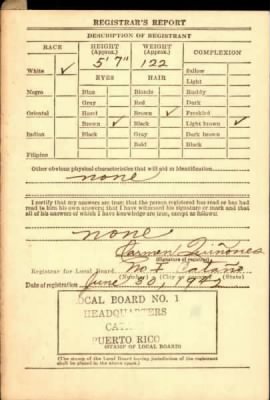 REGISTRAR'S REPORT
DESCRIPTION OF REGISTRANT
RACE HEIGHT (Approx.) WEIGHT (Approx.) COMPLEXION
5' 7" 122
White ✓ Sallow
EYES HAIR Light
Negro Blue Blonde Ruddy
Gray Red Dark
Oriental Hazel Brown ✓ Freckled
Brown ✓ Black Light brown ✓
Indian Black Gray Dark brown
Bald Black
Filipino
Other obvious physical characteristics that will aid in identification
none
I certify that my answers are true; that the person registered has read or has had
read to him his own answers; that I have witnessed his signature or mark and that
all of his answers of which I have knowledge are true, except as follows:
none
Carmen Quiñones
(Signature of registrar)
Registrar for Local Board No 1 Cataño
(Number) (City or county) (State)
Date of registration June 30, 1942
LOCAL BOARD NO. 1
HEADQUARTERS
PUERTO RICO
(STAMP OF LOCAL BOARD)
(The stamp of the Local Board having jurisdiction of the registrant
shall be placed in the above space.)